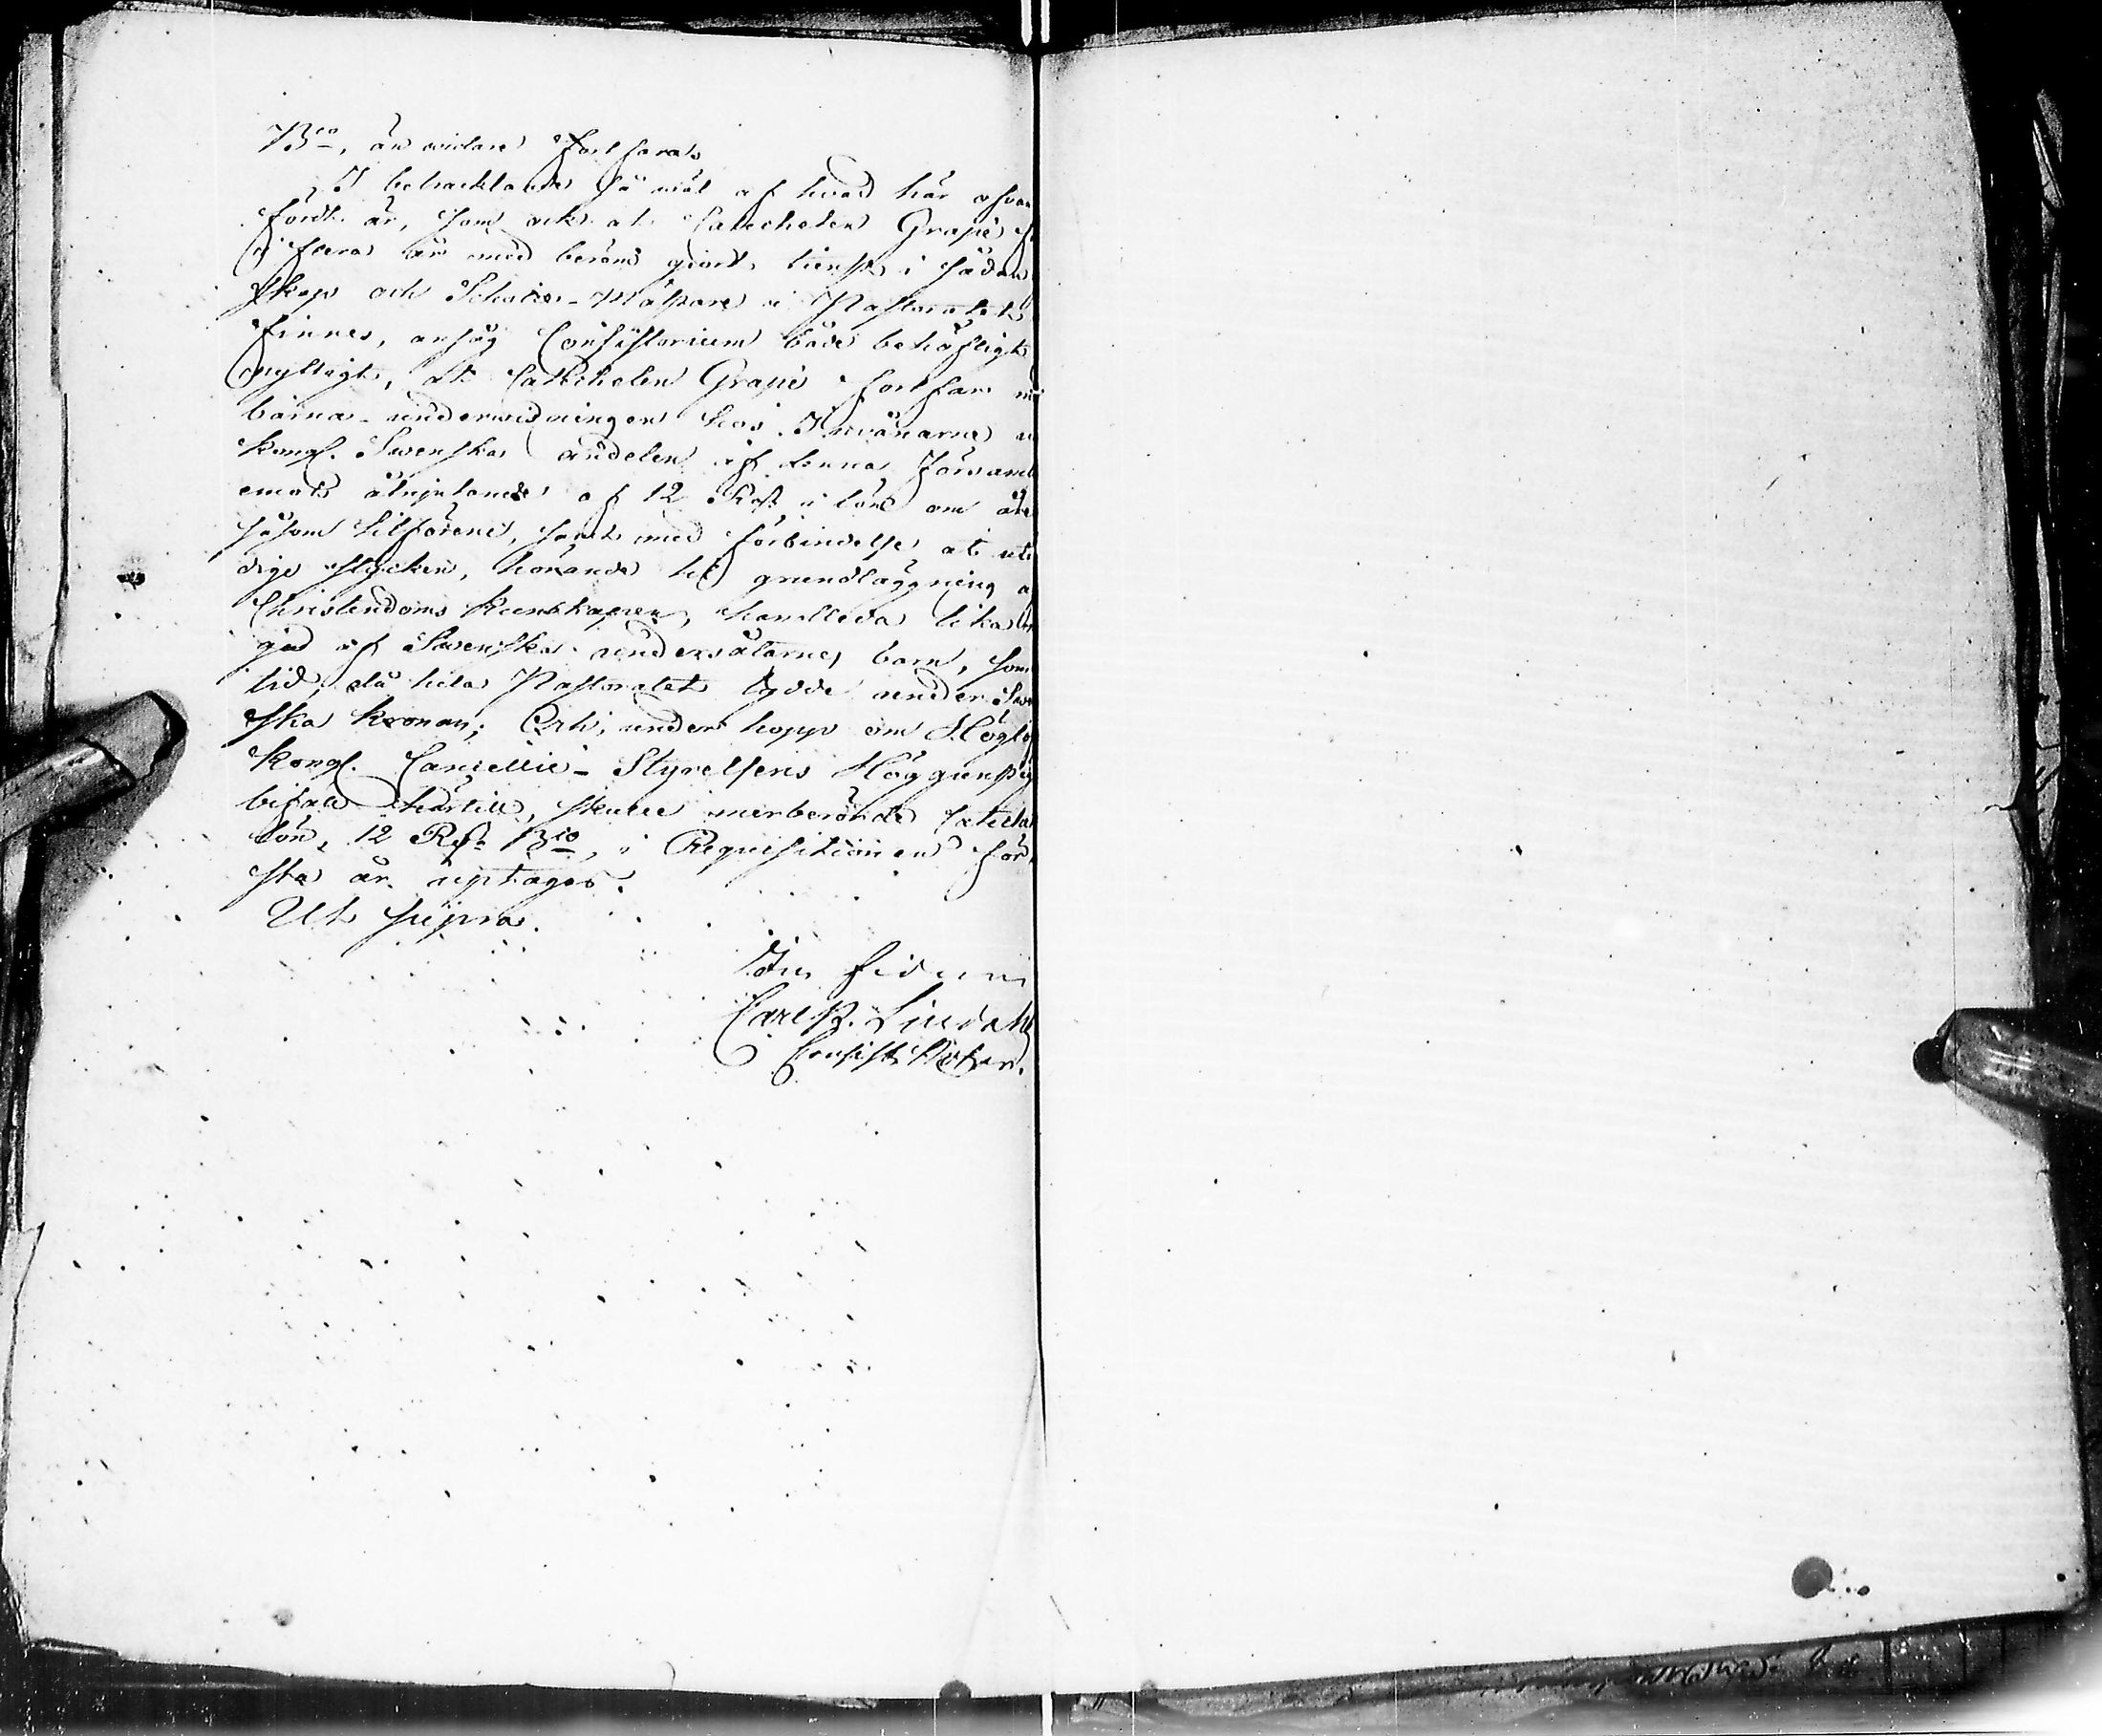 Bco, än widare fortfara.
I betracktande så wäl af hwad här ofwan
fördt är, som ock at Catecheten Grape
i flera år med beröm giort tienst i sådan
skap och Schole-Mästare i Pastoratet
finnes, ansåg Consistorium både behöfligt
nyttigt, at Catecheten Grape fortfar
barna-underwisningen hos Inwånarne
Kongl. Swenska andelen af denna Församl
emot åtnjutande af 12 Rdr i lön om året
såsom tilförene, samt med förbindelse at
dige stycken, hörande til grundläggning
Christendoms kunskapen, handleda lika
god af Swenska undersåtarnes barn, som
tid, då hela Pastoratet lydde under Swe
ska kronan; Och, under hopp om Höglof
Kongl. Cancellie-Styrelsens Höggunstig
bifall härtill, skulle merberörde Catechet
lön, 12 Rdr Bco, i Requisitionen för
sta år uptagas.
Ut supra.
In fidem
Carl P. Lindahl
Consist: Notar.